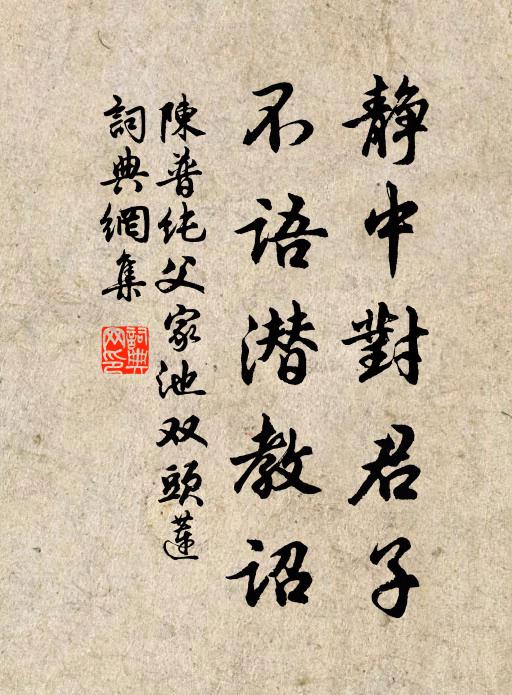 静中對君子
不語潜教詔
陳普纯父家池双頭蓮
詞典網集
詞典网印